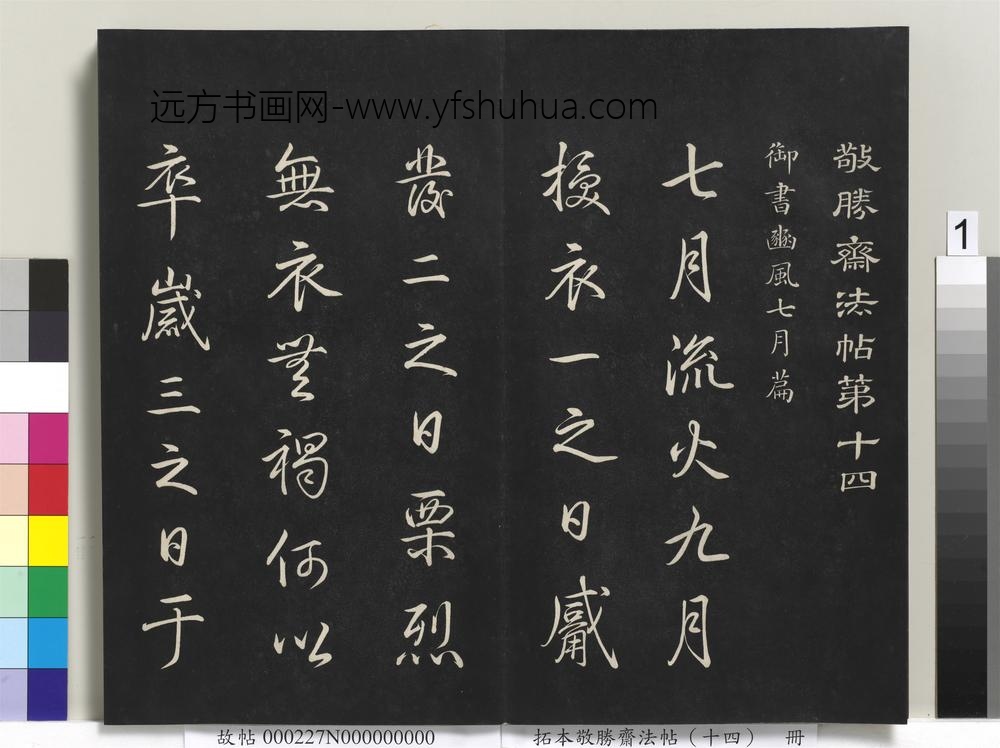 远方书画网-www.yfshuhua.com
敬勝齋法帖第十四
御書豳風七月篇
七月流火九月
授衣一之日觱
發二之日栗烈
無衣無褐何以
卒歲三之日于
1
故帖 000227N000000000
拓本敬勝齋法帖（十四） 冊